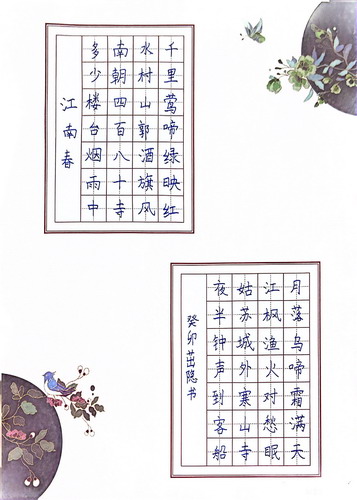 千里莺啼绿映红
水村山郭酒旗风
南朝四百八十寺
多少楼台烟雨中
江南春
月落乌啼霜满天
江枫渔火对愁眠
姑苏城外寒山寺
夜半钟声到客船
癸卯茁隐书